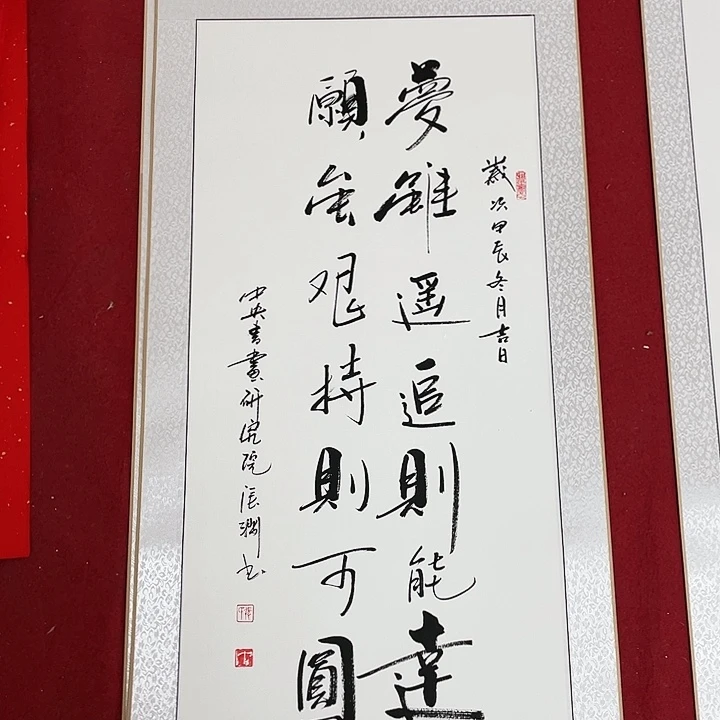 歲次甲辰冬月吉日
夢雖遥追則能達
願虽艰持則可圓
中央书畫研究院张书